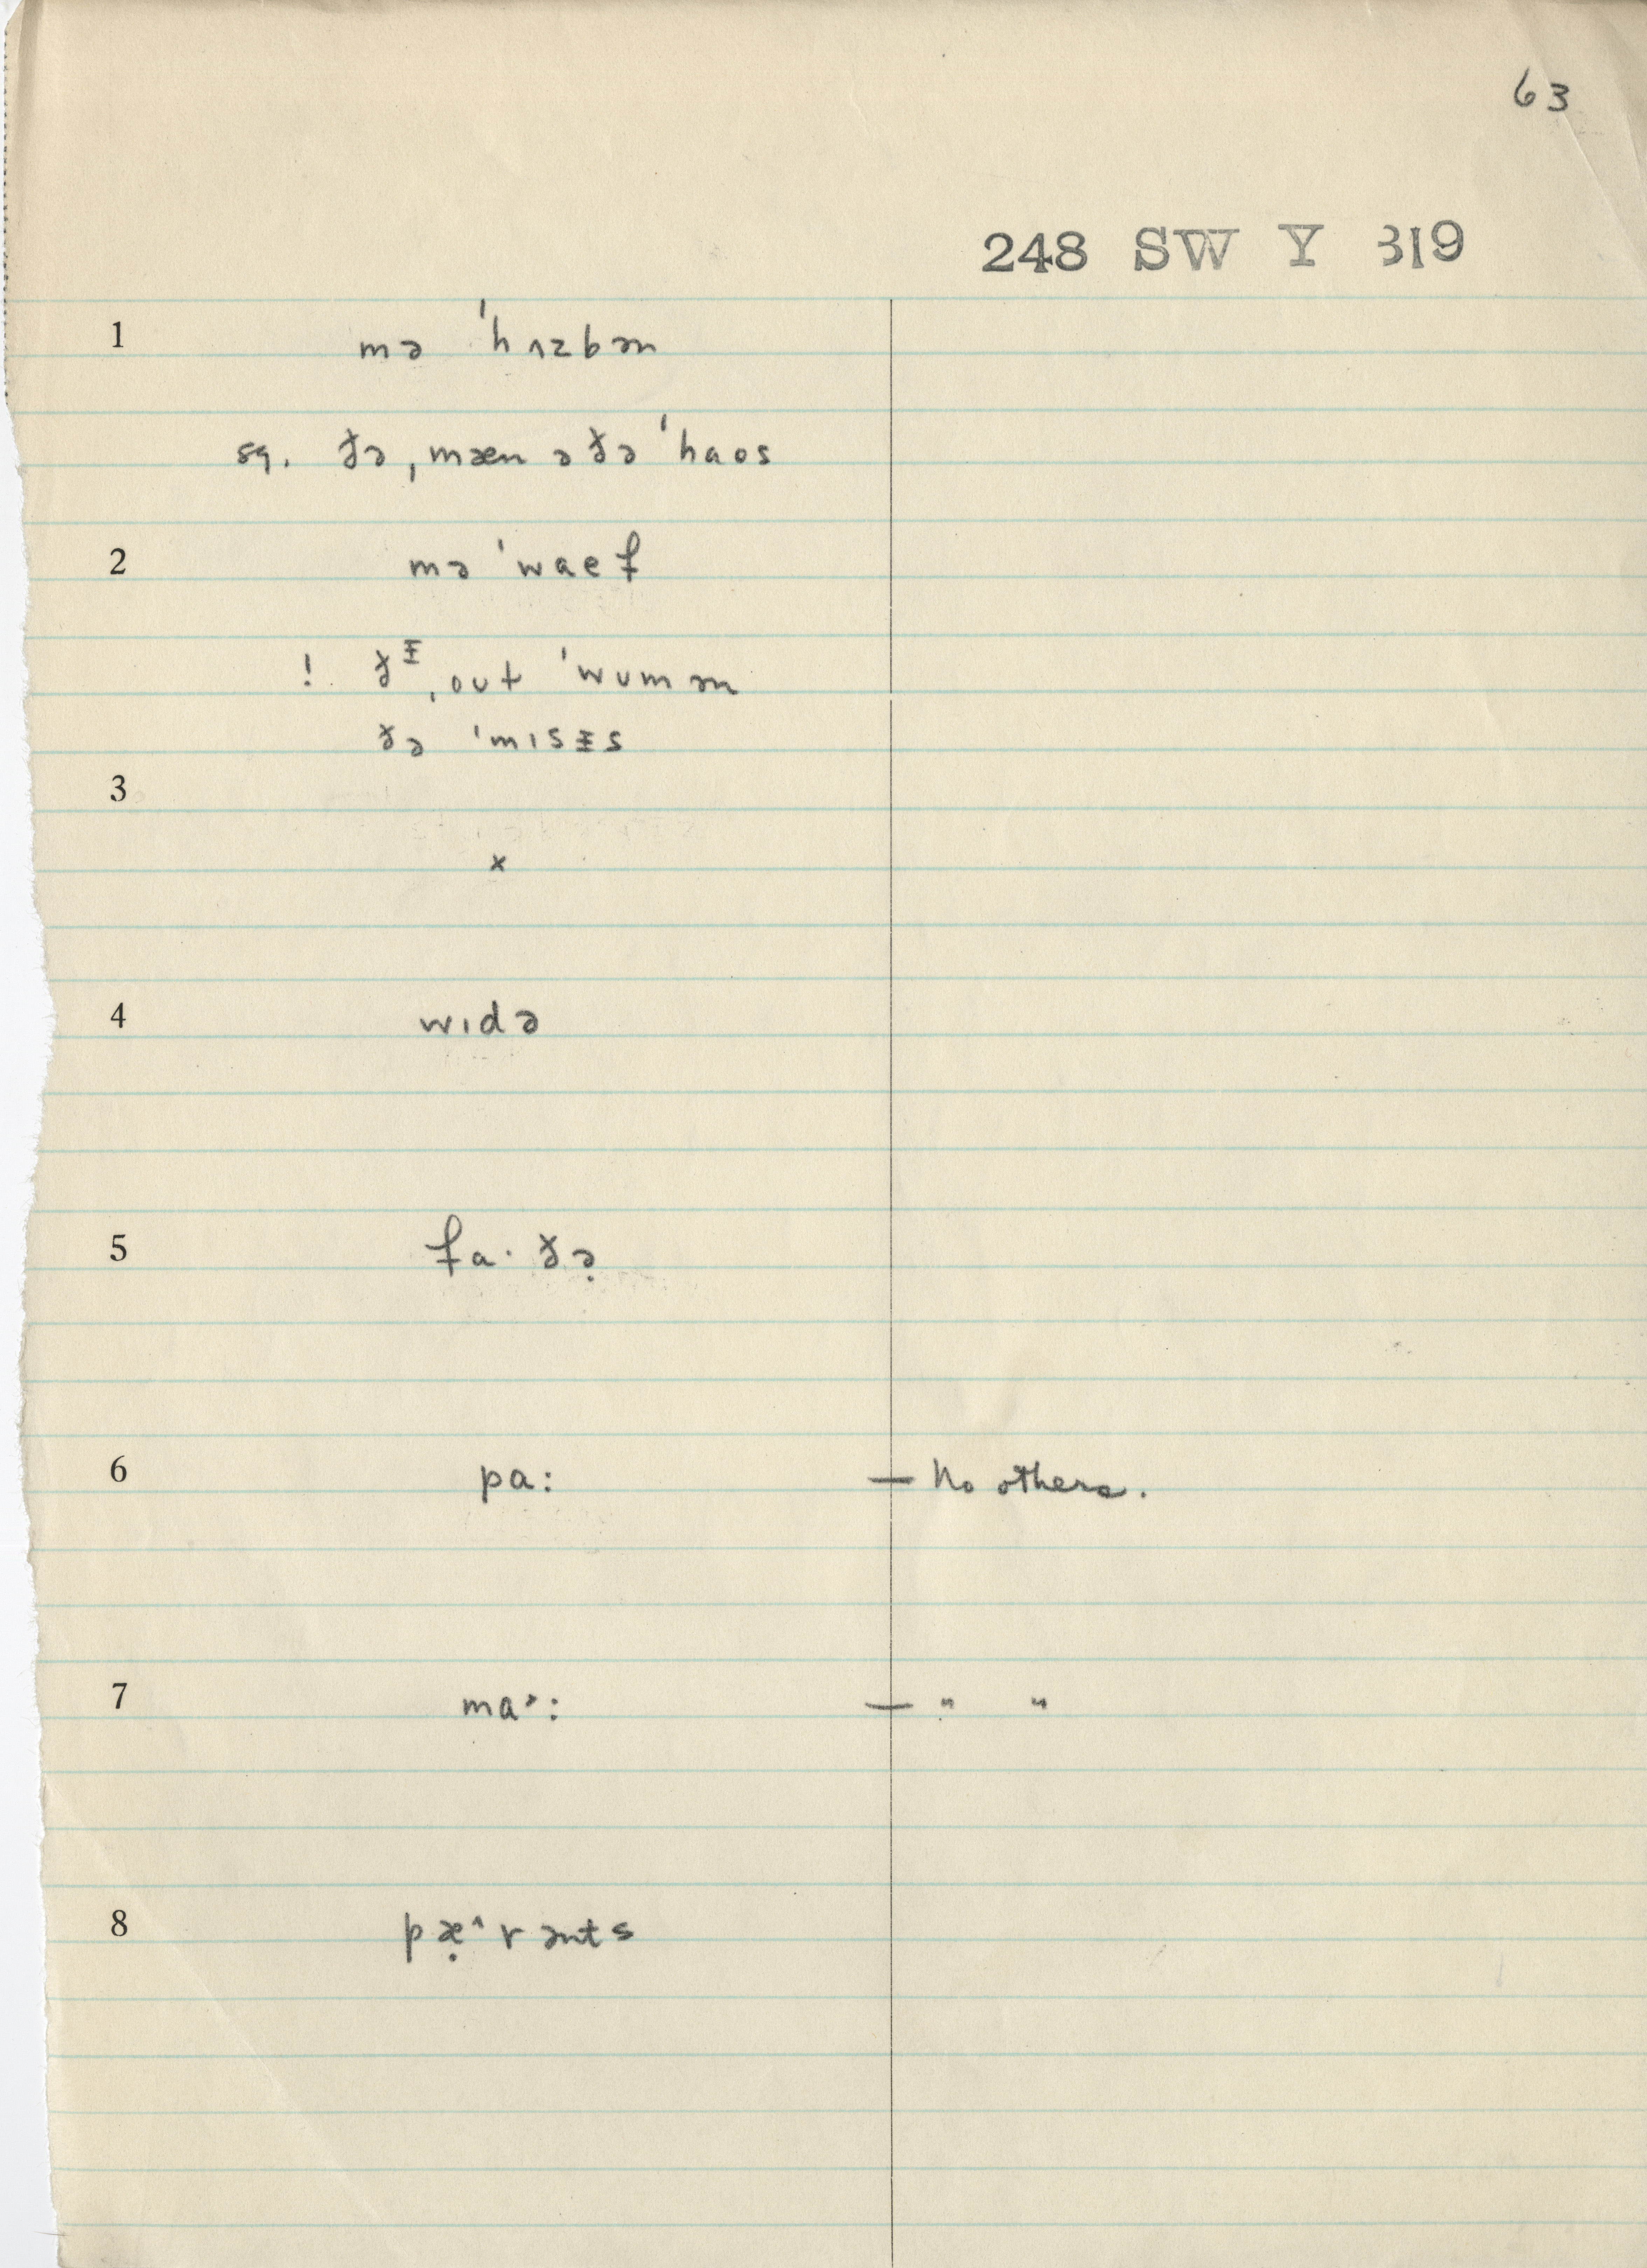 63
248 SW Y 319
1 mə ˈhʌzbən
sq. ðə ˌmæn ə ðə ˈhaos
2 mə ˈwaef
! ðᵻ ˌout ˈwumən
ðə ˈmɪsᵻs
3
×
4 wɪdə
5 fa· ðə̣
6 pa: — No others.
7 ma˃: — " "
8 pæ̣˄rənts